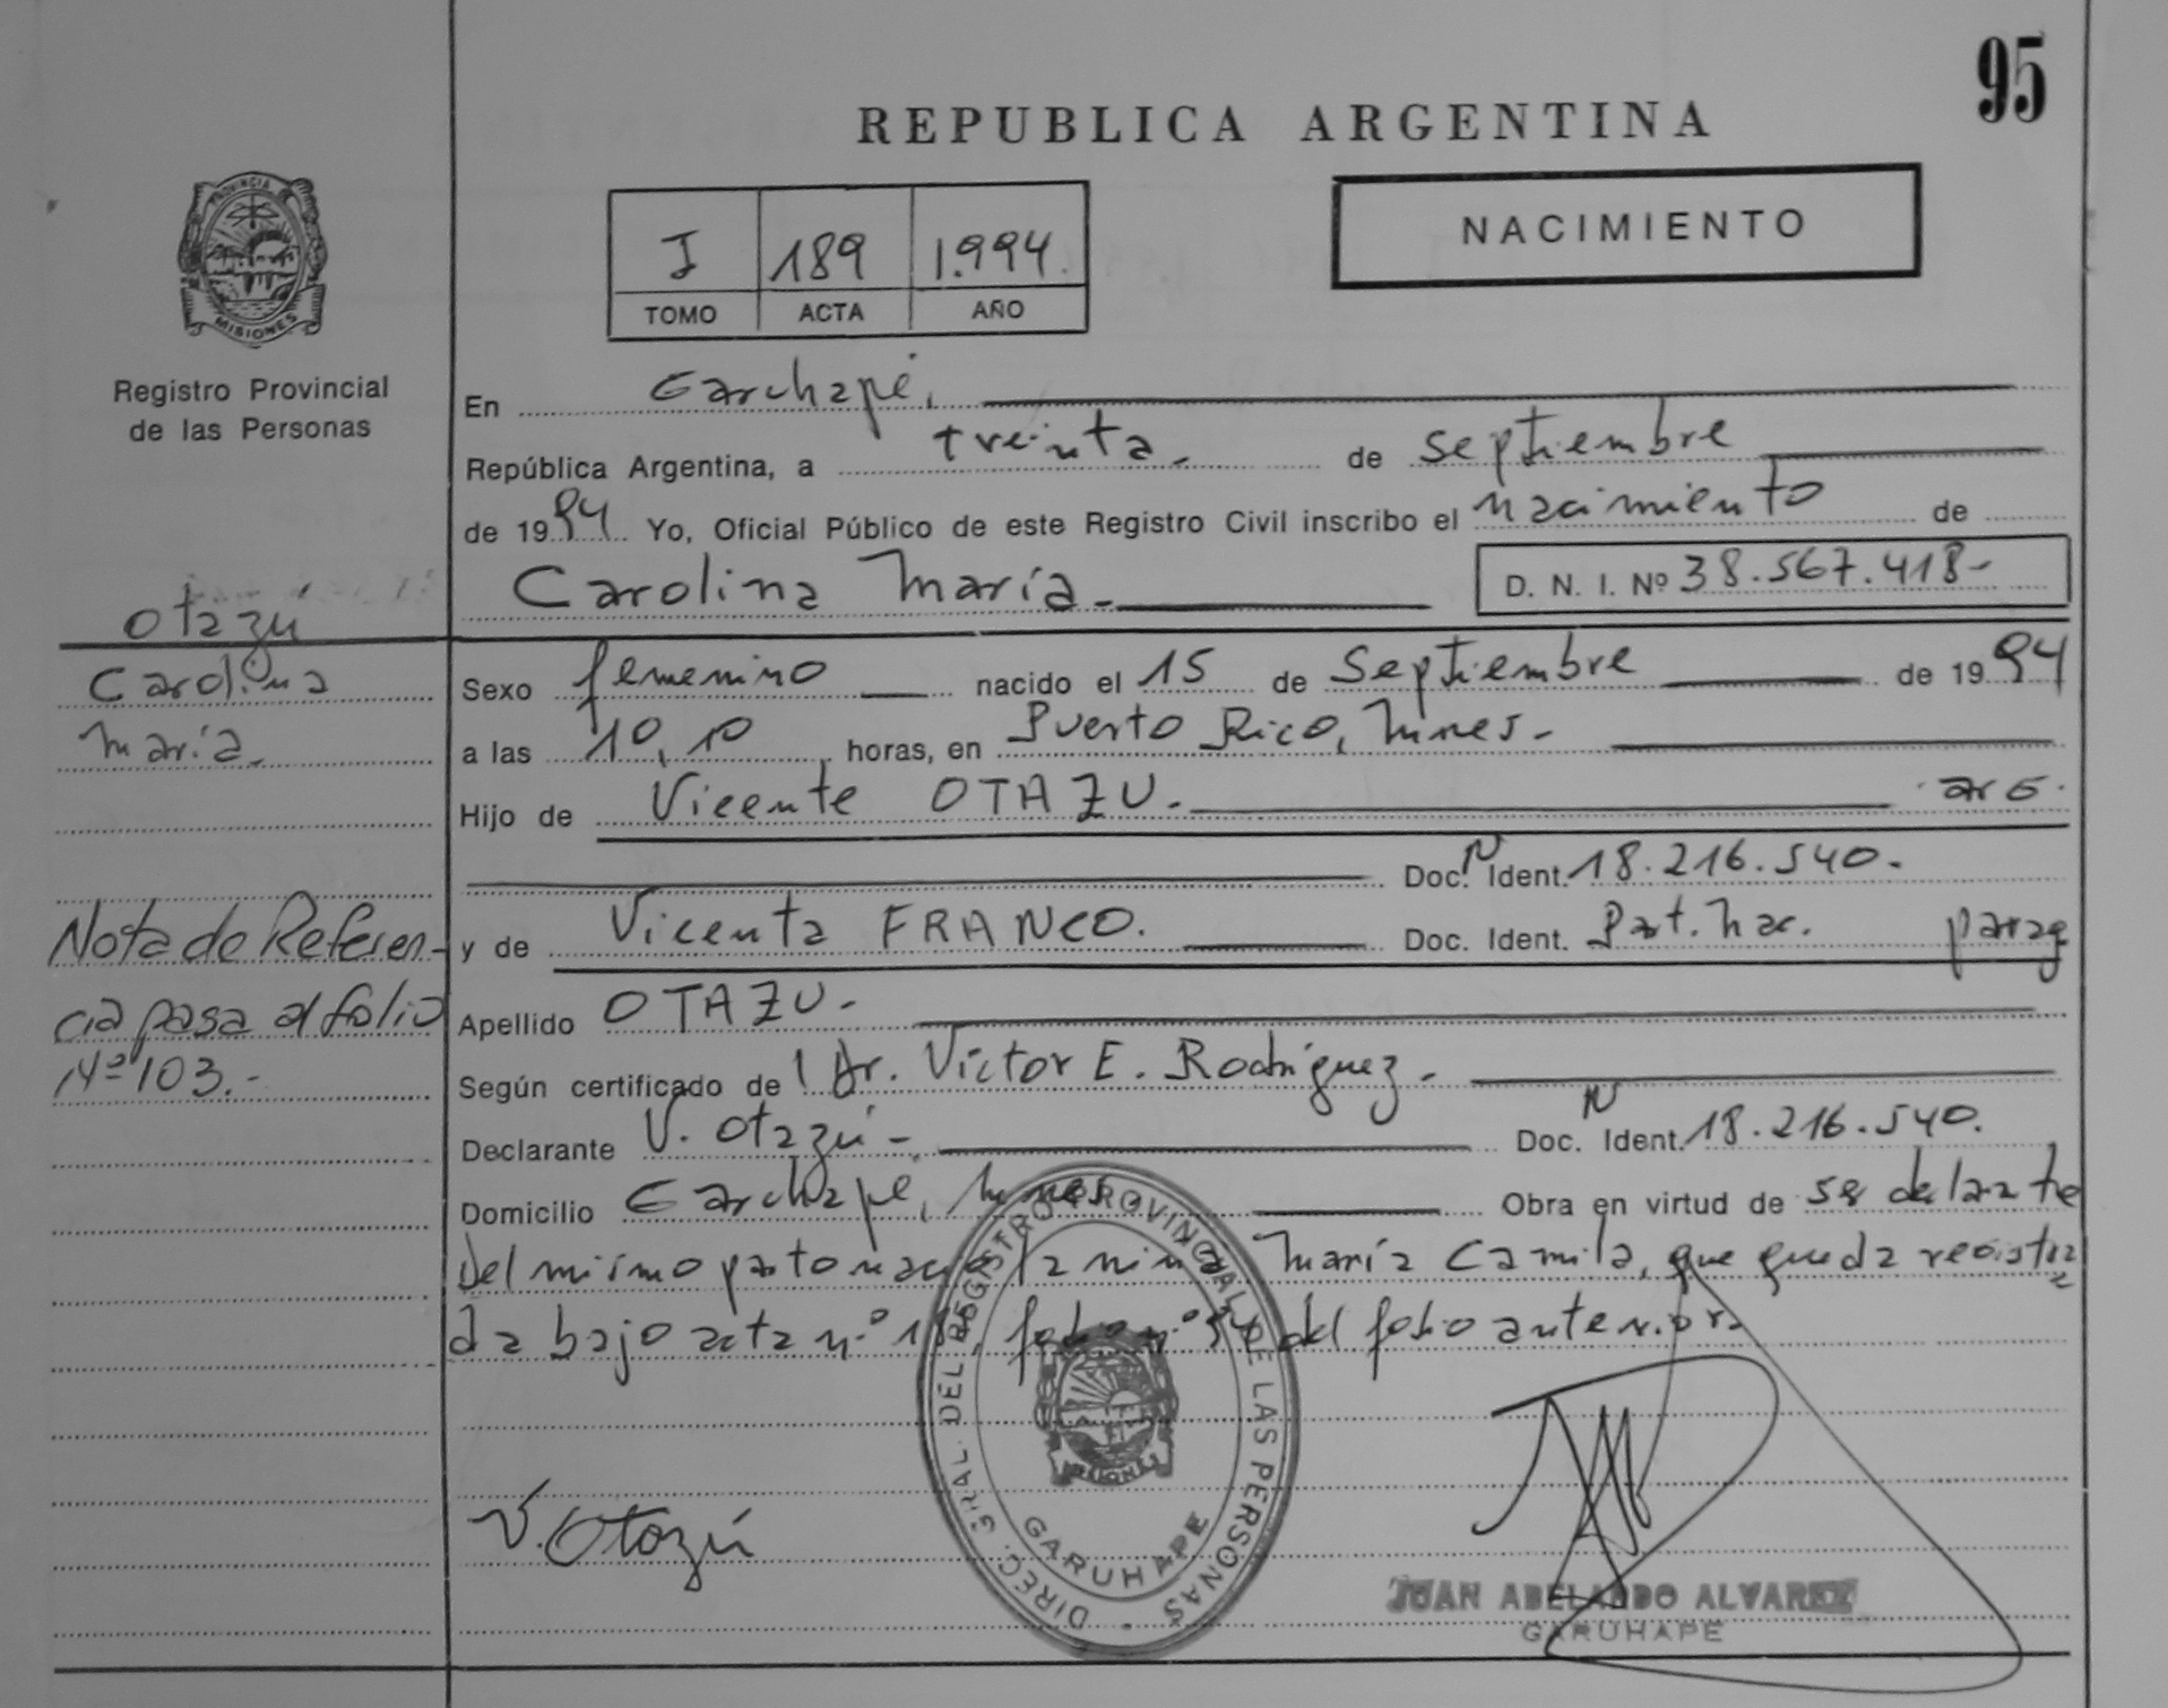 95
REPUBLICA ARGENTINA
NACIMIENTO
I 189 1.994.
TOMO ACTA AÑO
PROVINCIA DE
MISIONES
Registro Provincial
de las Personas
En Garuhapé,
República Argentina, a treinta. de septiembre
de 1994 Yo, Oficial Público de este Registro Civil inscribo el nacimiento de
Carolina María. D. N. I. Nº 38.567.418-
Otazú
Carolina
María.
Sexo femenino nacido el 15 de Septiembre de 1994
a las 10,10 horas, en Puerto Rico, Mnes.
Hijo de Vicente OTAZU. arg.
Doc. N Ident. 18.216.540.
y de Vicenta FRANCO. Doc. Ident. Part. Nac. parag
Nota de Referen-
cia pasa al folio
Nº 103.-
Apellido OTAZU.
Según certificado de Dr. Víctor E. Rodríguez.
Declarante V. Otazú- Doc. N Ident. 18.216.540.
Domicilio Garuhapé, Mnes. Obra en virtud de
Del mismo parto nació la niña María Camila, que queda registra
da bajo acta n.º folio n.º del folio anterior.
DIREC. GRAL. DEL REGISTRO PROVINCIAL DE LAS PERSONAS
GARUHAPE
V. Otazú
JUAN ABELARDO ALVAREZ
GARUHAPE